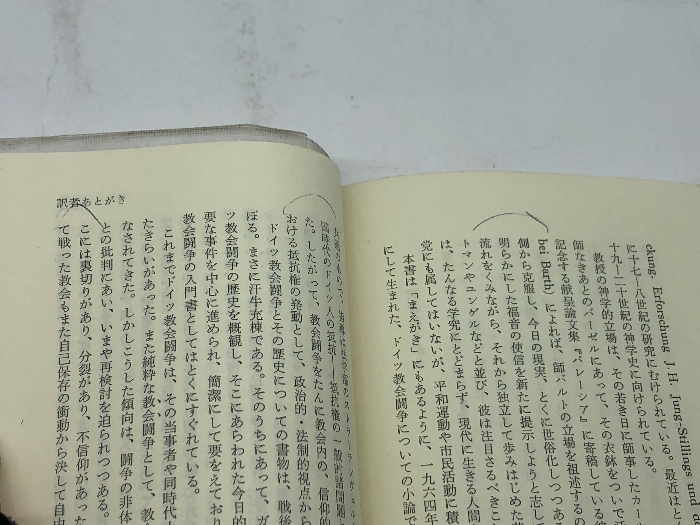 ckung, Erforschung J. H. Jung-Stillings und
に十七-八世紀の研究にむけられている。最近はと
教授の神学的立場は、その若き日に師事したカール
十九-二十世紀の神学史に向けられている。
師なきあとのバーゼルにあって、その衣鉢をついで
記念する献呈論文集『パレーシア』に寄稿している
bei Barth) によれば、師バルトの立場を祖述するの
側から克服し、今日の現実、とくに世俗化しつつある
明らかにした福音の使信を新たに提示しようと志し
流れをくみながら、それから独立して歩みはじめた
トマンやユンゲルなどと並び、彼は注目さるべきこ
は、たんなる学究にとどまらず、現代に生きる人間
党にも属してはいないが、平和運動や市民活動に積
本書は「まえがき」にもあるように、一九六四年
にして生まれた、ドイツ教会闘争についての小論で
訳者あとがき
国時代のドイツ人の抵抗―抵抗権の一般的諸問題
た。したがって、教会闘争をたんに教会内の、信仰的
おける抵抗権の発動として、政治的・法制的視点から
ドイツ教会闘争とその歴史についての書物は、戦後
ぼる。まさに汗牛充棟である。そのうちにあって、ガ
ツ教会闘争の歴史を概観し、そこにあらわれた今日的
要な事件を中心に進められ、簡潔にして要をえており
教会闘争の入門書としてはとくにすぐれている。
これまでドイツ教会闘争は、その当事者や同時代人
たきらいがあった。また純粋な教会闘争として、教
なされてきた。しかしこうした傾向は、闘争の非体
との批判にあい、いまや再検討を迫られつつある。
こには裏切りがあり、分裂があり、不信仰があった
て戦った教会もまた自己保存の衝動から決して自由